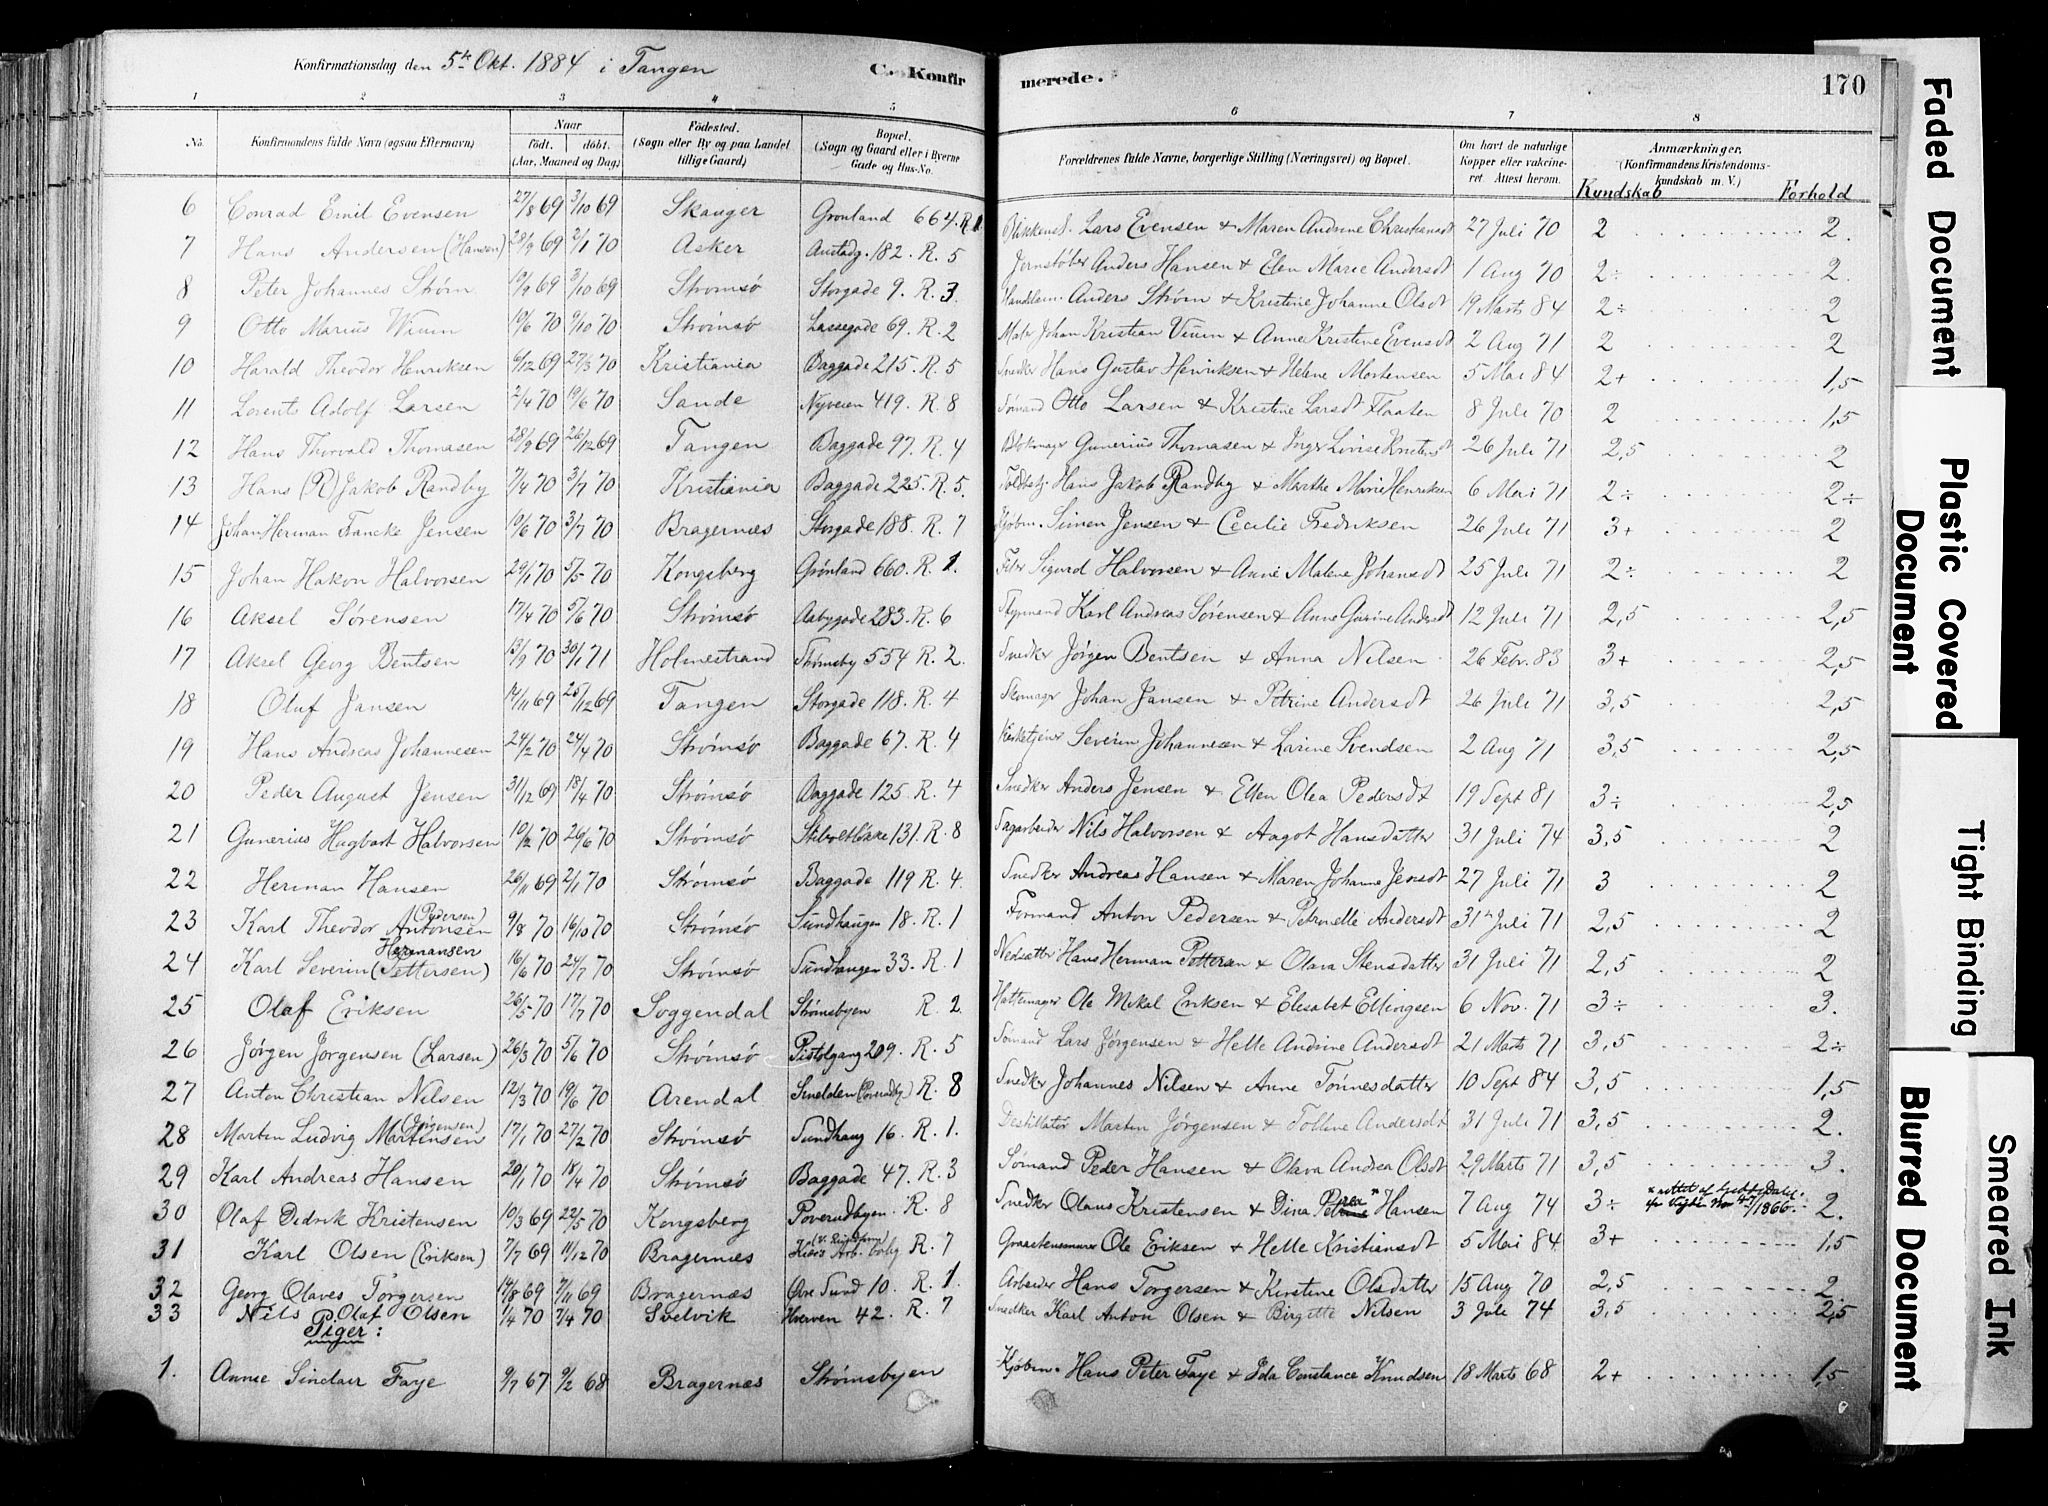 Konfirmationsdag den 5te Okt. 1884 i Tangen C. Konfir merede. 170
1 2 3 4 5 6 7 8
No. Konfirmandens fulde Navn (ogsaa Efternavn) Naar født. døbt. (Aar, Maaned og Dag) Fødested. (Sogn eller By og paa Landet tillige Gaard) Bopæl. (Sogn og Gaard eller i Byerne Gade og Hus-No. Forældrenes fulde Navne, borgerlige Stilling (Næringsvei) og Bopæl. Om havt de naturlige Kopper eller vakcineret. Attest herom. Anmærkninger. (Konfirmandens Kristendomskundskab m. V.) Kundskab Forhold
6 Conrad Emil Evensen 27/8 69 3/10 69 Skauger Grønland 664. R. 1 Lars Evensen & Maren Andrine Christiansdt 27 Juli 70 2 2.
7 Hans Andersen (Hansen) 28/9 69 2/1 70 Asker 182. R. 5 Jernstøber Anders Hansen & Elen Marie Andersdt 1 Aug 70 2÷ 2.
8 Peter Johannes Strøm 19/9 69 3/10 69 Strømsø Storgade 9. R. 3. Handelsm. Anders Strøm & Kristine Johanne Olsdt 19 Marts 84 2÷ 2
9 Otto Marius Wium 19/6 70 9/10 70 Strømsø Lassegade 69. R. 2 Johan Kristian Viium & Anne Kristine Evensdt 2 Aug 71 2 2
10 Harald Theodor Henriksen 6/12 69 27/3 70 Kristiania Baggade 215. R. 5 Snedker Hans Gustav Henriksen & Helene Mortensen 5 Mai 84 2+ 1,5
11 Lorents Adolf Larsen 2/4 70 19/6 70 Sande Nyveien 419. R. 8 Sømand Otto Larsen & Kristine Larsdt Flaaten 8 Juli 70 2 1,5
12 Hans Thorvald Thomasen 28/9 69 26/12 69 Tangen Baggade 97. R. 4 Blokmager Gunerius Thomasen & Inger Lovise 26 Juli 71 2,5 2
13 Hans (R) Jakob Randby 7/4 70 3/7 70 Kristiania Baggade 225. R. 5. Hans Jakob Randby & Marthe Marie Henriksen 6 Mai 71 2÷ 2÷
14 Johan Herman Francke Jensen 10/6 70 3/7 70 Bragernæs Storgade 188. R. 7 Kjøbm. Simen Jensen & Cecilie Fredriksen 26 Juli 71 3+ 2
15 Johan Hakon Halvorsen 29/1 70 5/5 70 Kongsberg Grønland 660. R. 1. Sigurd Halvorsen & Anne Malene Johansdt 25 Juli 71 2÷ 2
16 Aksel Sørensen 17/4 70 5/6 70 Strømsø Aabygade 283. R. 6 Styrmand Karl Andreas Sørensen & Anne Gurine Andersdt 12 Juli 71 2,5 2,5
17 Aksel Georg Bentsen 13/9 70 30/1 71 Holmestrand Strømsby 554 R. 2. Snedker Jørgen Bentsen & Anna Nilsen 26 Febr. 83 3+ 2,5
18 Oluf Jansen 17/11 69 25/12 69 Tangen Storgade 118. R. 4 Skomager Johan Jansen & Petrine Andersdt 26 Juli 71 3,5 2,5
19 Hans Andreas Johannesen 24/2 70 24/4 70 Strømsø Baggade 67. R. 4 Kirketjener Severin Johannesen & Larine Svendsen 2 Aug 71 3,5 2,5
20 Peder August Jensen 31/12 69 18/4 70 Strømsø Baggade 125. R. 4 Snedker Anders Jensen & Ellen Olea Pedersdt 19 Sept 81 3÷ 2,5
21 Gunerius Hagbart Halvorsen 10/2 70 26/6 70 Strømsø Stiboltløkke 131. R. 8 Sagarbeider Nils Halvorsen & Aagot Hansdatter 31 Juli 74 3,5 2
22 Herman Hansen 26/11 69 2/1 70 Strømsø Baggade 119 R. 4. Snedker Andreas Hansen & Maren Johanne Jensdt 27 Juli 71 3 2
23 Karl Theodor Antonsen (Pedersen) 9/8 70 16/10 70 Strømsø Sundhaugen 18. R. 1 Formand Anton Pedersen & Petronelle Andersdt 31te Juli 71 2,5 2
24 Karl Severin Hermansen (Pettersen) 16/6 70 24/7 70 Strømsø Sundhaugen 33. R. 1 Hans Herman Pettersen & Olava Stensdatter 31 Juli 71 2,5 2
25 Olaf Eriksen 26/5 70 17/7 70 Soggendal Strømsbyen R. 2. Hattemager Ole Mikal Eriksen & Elisabet Ellingsen 6 Nov. 71 3÷ 3.
26 Jørgen Jorgensen (Larsen) 26/3 70 5/6 70 Strømsø Pistolgang 209. R. 5 Sømand Lars Jørgensen & Helle Andrine Andersdt 21 Marts 71 3,5 2÷
27 Anton Christian Nilsen 12/3 70 19/6 70 Arendal R. 8 Snedker Johannes Nilsen & Anne Tønnesdatter 10 Sept 84 3,5 1,5
28 Morten Ludvig Martensen (Jørgensen) 17/1 70 27/2 70 Strømsø Sundhaug 16. R. 1. Destillatør Martin Jørgensen & Tolline Andersdt 31 Juli 71 3,5 2.
29 Karl Andreas Hansen 20/1 70 18/4 70 Strømsø Baggade 47. R. 3 Sømand Peder Hansen & Olava Andrea Olsdt 29 Marts 71 3,5 3.
30 Olaf Didrik Kristensen 10/3 69 22/5 70 Kongsberg Poverudbyen. R. 8 Snedker Olaus Kristensen & Dina Hansen 7 Aug 74 3÷ 2.
31 Karl Olsen (Eriksen) 7/7 69 11/12 70 Bragernæs Arb. bolig R. 7 Ole Eriksen & Helle Kristiansdt 5 Mai 84 3+ 1,5
32 Georg Olaves Torgersen 14/8 69 7/11 69 Bragernæs Øvre Sund 10. R. 1. Arbeider Hans Torgersen & Kirstine Olsdatter 15 Aug 70 2,5 2.
33 Nils Olaf Olsen 1/4 70 7/4 70 Svelvik Hverven 42. R. 7 Snedker Karl Anton Olsen & Birgitte Nilsen 3 Juli 74 3,5 2,5
Piger:
1. Annie Sinclair Faye 9/7 67 9/2 68 Bragernæs Strømsbyen Kjøbm. Hans Peter Faye & Ida Constance Knudsen 18 Marts 68 2+ 1,5
Faded Document
Plastic Covered Document
Tight Binding
Blurred Document
Smeared Ink